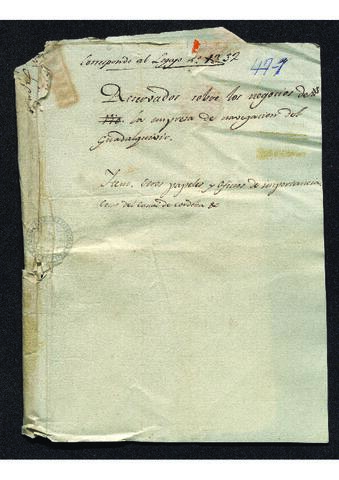 Corresponde al Legajo n.º 32
477
Reservados sobre los negocios de
la empresa de navegacion del
Guadalquivir.
Item. Otros papeles y oficios de importancia
del Canal de Cordoba &